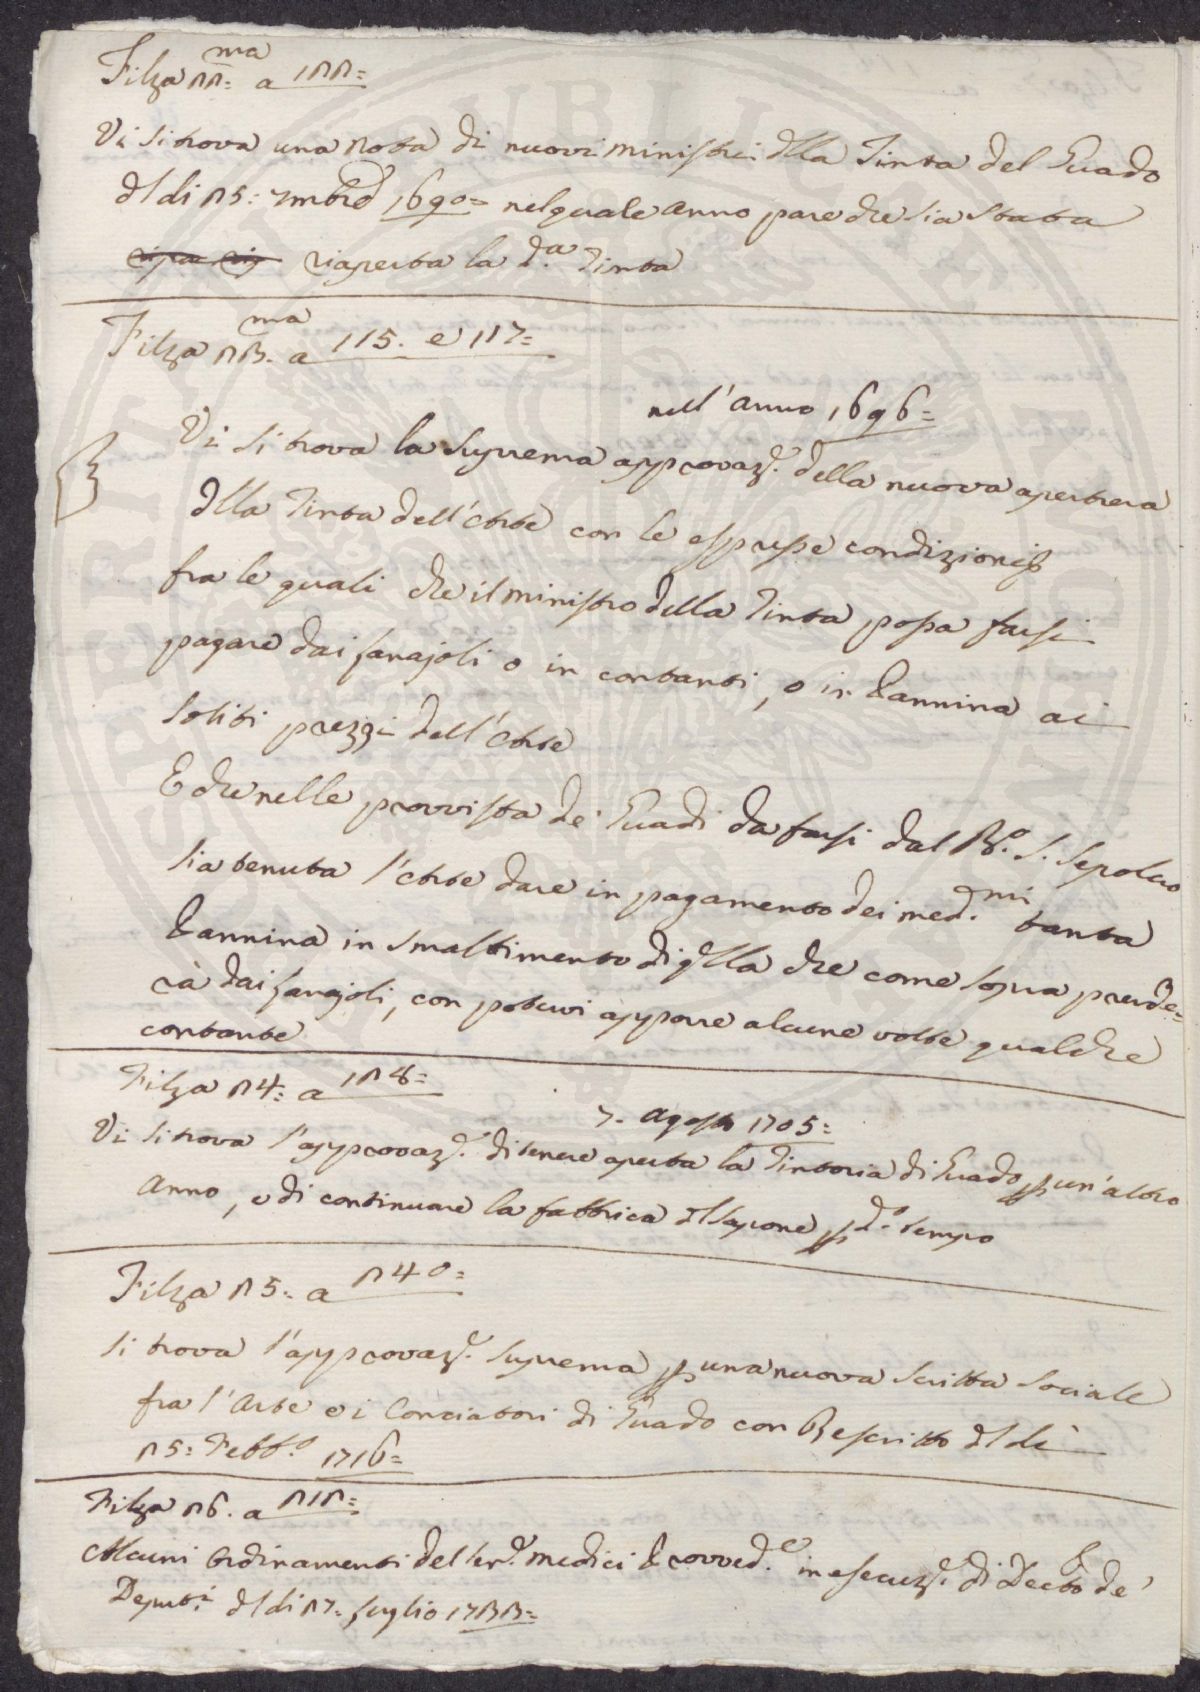 Filza 22:ma a 122=
Vi si trova una Nota di nuovi ministri dlla Tinta del Guado
dl di 25: 7mbre 1690= nel quale anno pare che sia stata
riaperta la d.a Tinta
Filza 23.ma a 115. e 117=
nell'anno 1696=
Vi si trova la suprema approvaz.e della nuova apertura
dlla Tinta dell'Arte con le espresse condizioni
fra le quali che il ministro della Tinta possa farsi
pagare dai lanajoli o in contanti, o in Pannina ai
soliti prezzi dell'Arte
E che nelle provvista de' Guadi da farsi dal B.o S. Sepolcro
sia tenuta l'Arte dare in pagamento dei med.mi tanta
Pannina in smaltimento di qlla che come sopra prende=
rà dai lanajoli, con potervi apporre alcune volte qualche
contante
Filza 24: a 128=
7. Agosto 1705=
Vi si trova l'approvaz.e di tenere aperta la Tintoria di Guado p un'altro
Anno, e di continuare la fabbrica dl sapone p d.o tempo
Filza 25: a 240=
Si trova l'approvaz.e suprema p una nuova scritta sociale
fra l'Arte e i Conciatori di Guado con Rescritto dl di
25= Febb.o 1716=
Filza 26. a 212=
Alcuni Ordinamenti del Ser.e Medici Provved.e in esecuz.e di Decto de'
Deput.i dl di 27= luglio 1733=